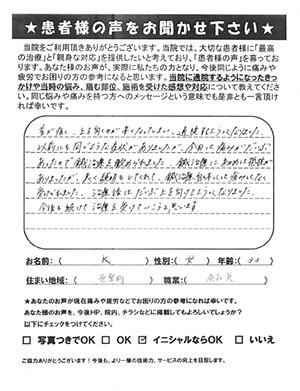 ★患者様の声をお聞かせ下さい★
当院をご利用頂きありがとうございます。当院では、大切な患者様に「最高
の治療」と「親身な対応」を提供したいと考えており、「患者様の声」を募ってお
ります。あなた様のお声が、実際に私たちの力となり、今後同じように痛みや
疲労でお困りの方の参考になると思います。当院に通院するようになったきっ
かけや当時の悩み、痛む部位、施術を受けた感想や対応について教えてくださ
い。同じ悩みや痛みを持つ方へのメッセージという意味でも是非とも一言頂け
れば幸いです。
首が痛く、上を向くのが辛くなってしまい、通院するようになりました。
以前にも同じような症状がありましたが、今回は痛みがだいぶ
あったので鍼治療を勧められました。鍼治療に
ありましたが、
受けられました。治療後はだいぶ上を向けるようになりました。
今後も続けて治療を受けていこうと思います。
お名前:( K ) 性別:( 女 ) 年齢:( 33 )
住まい地域:( ) 職業:( 会社員 )
★あなたのお声が現在痛みや疲労などでお困りの方の参考になれば幸いです。
あなた様のお声を、今後HP、院内、チラシなどに掲載してもよろしいでしょうか?
以下にチェックをつけてください。
□ 写真つきでOK □ OK ☑ イニシャルならOK □ いいえ
ご協力ありがとうございます!今後も、より一層の技術力、サービスの向上を目指します。